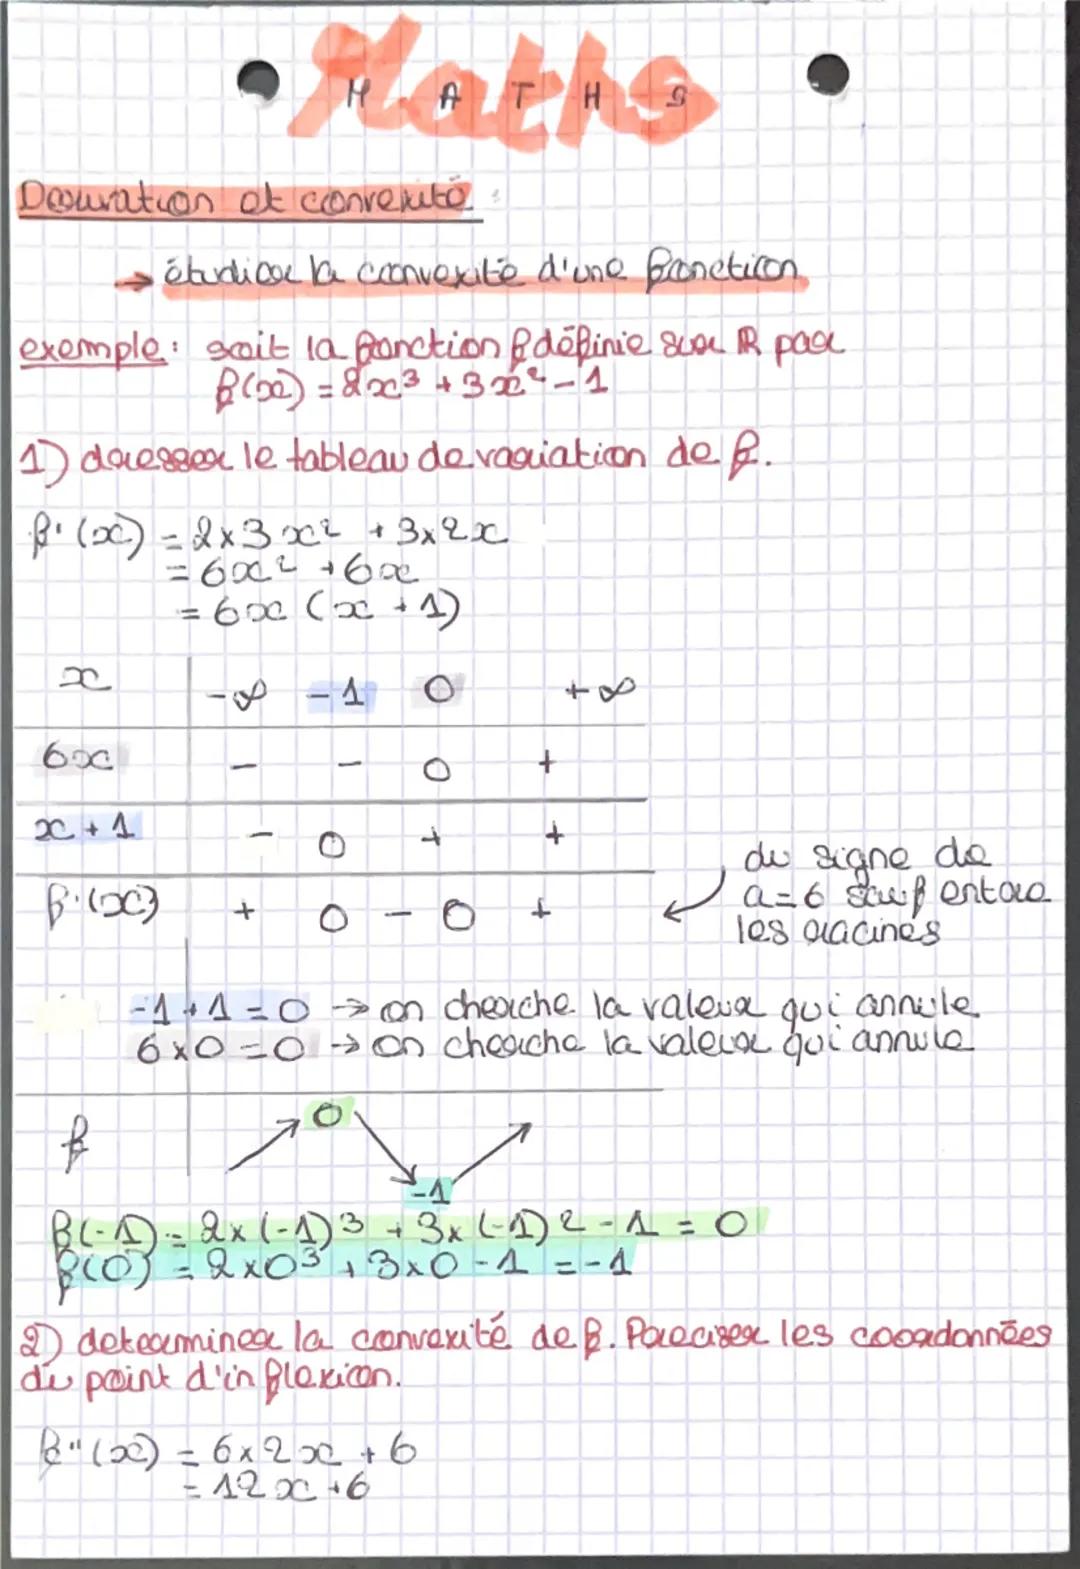 Maths
M A T H S
Dérivation et convexité :
→ étudier la convexité d'une fonction
exemple : soit la fonction f définie sur ℝ par
f(x) = 2x³ + 3x² - 1
1) dresser le tableau de variation de f.
f'(x) = 2×3x² + 3×2x
= 6x² + 6x
= 6x (x + 1)
x -∞ -1 0 +∞
6x - - 0 +
x + 1 - 0 + +
f'(x) + 0 - 0 +
du signe de
a=6 sauf entre
les racines
-1 + 1 = 0 → on cherche la valeur qui annule
6×0 = 0 → on cherche la valeur qui annule
f 0 -1
f(-1) = 2×(-1)³ + 3×(-1)² - 1 = 0
f(0) = 2×0³ + 3×0 - 1 = -1
2) determiner la convexité de f. Préciser les coordonnées
du point d'inflexion.
f''(x) = 6×2x + 6
= 12x + 6